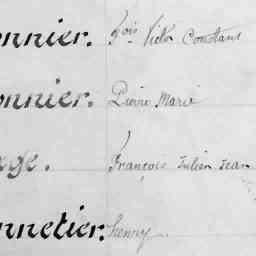 onnier. fois Victor Constant
onnier. Pierre Marie
age. François Julien Jean
nnetier. henry